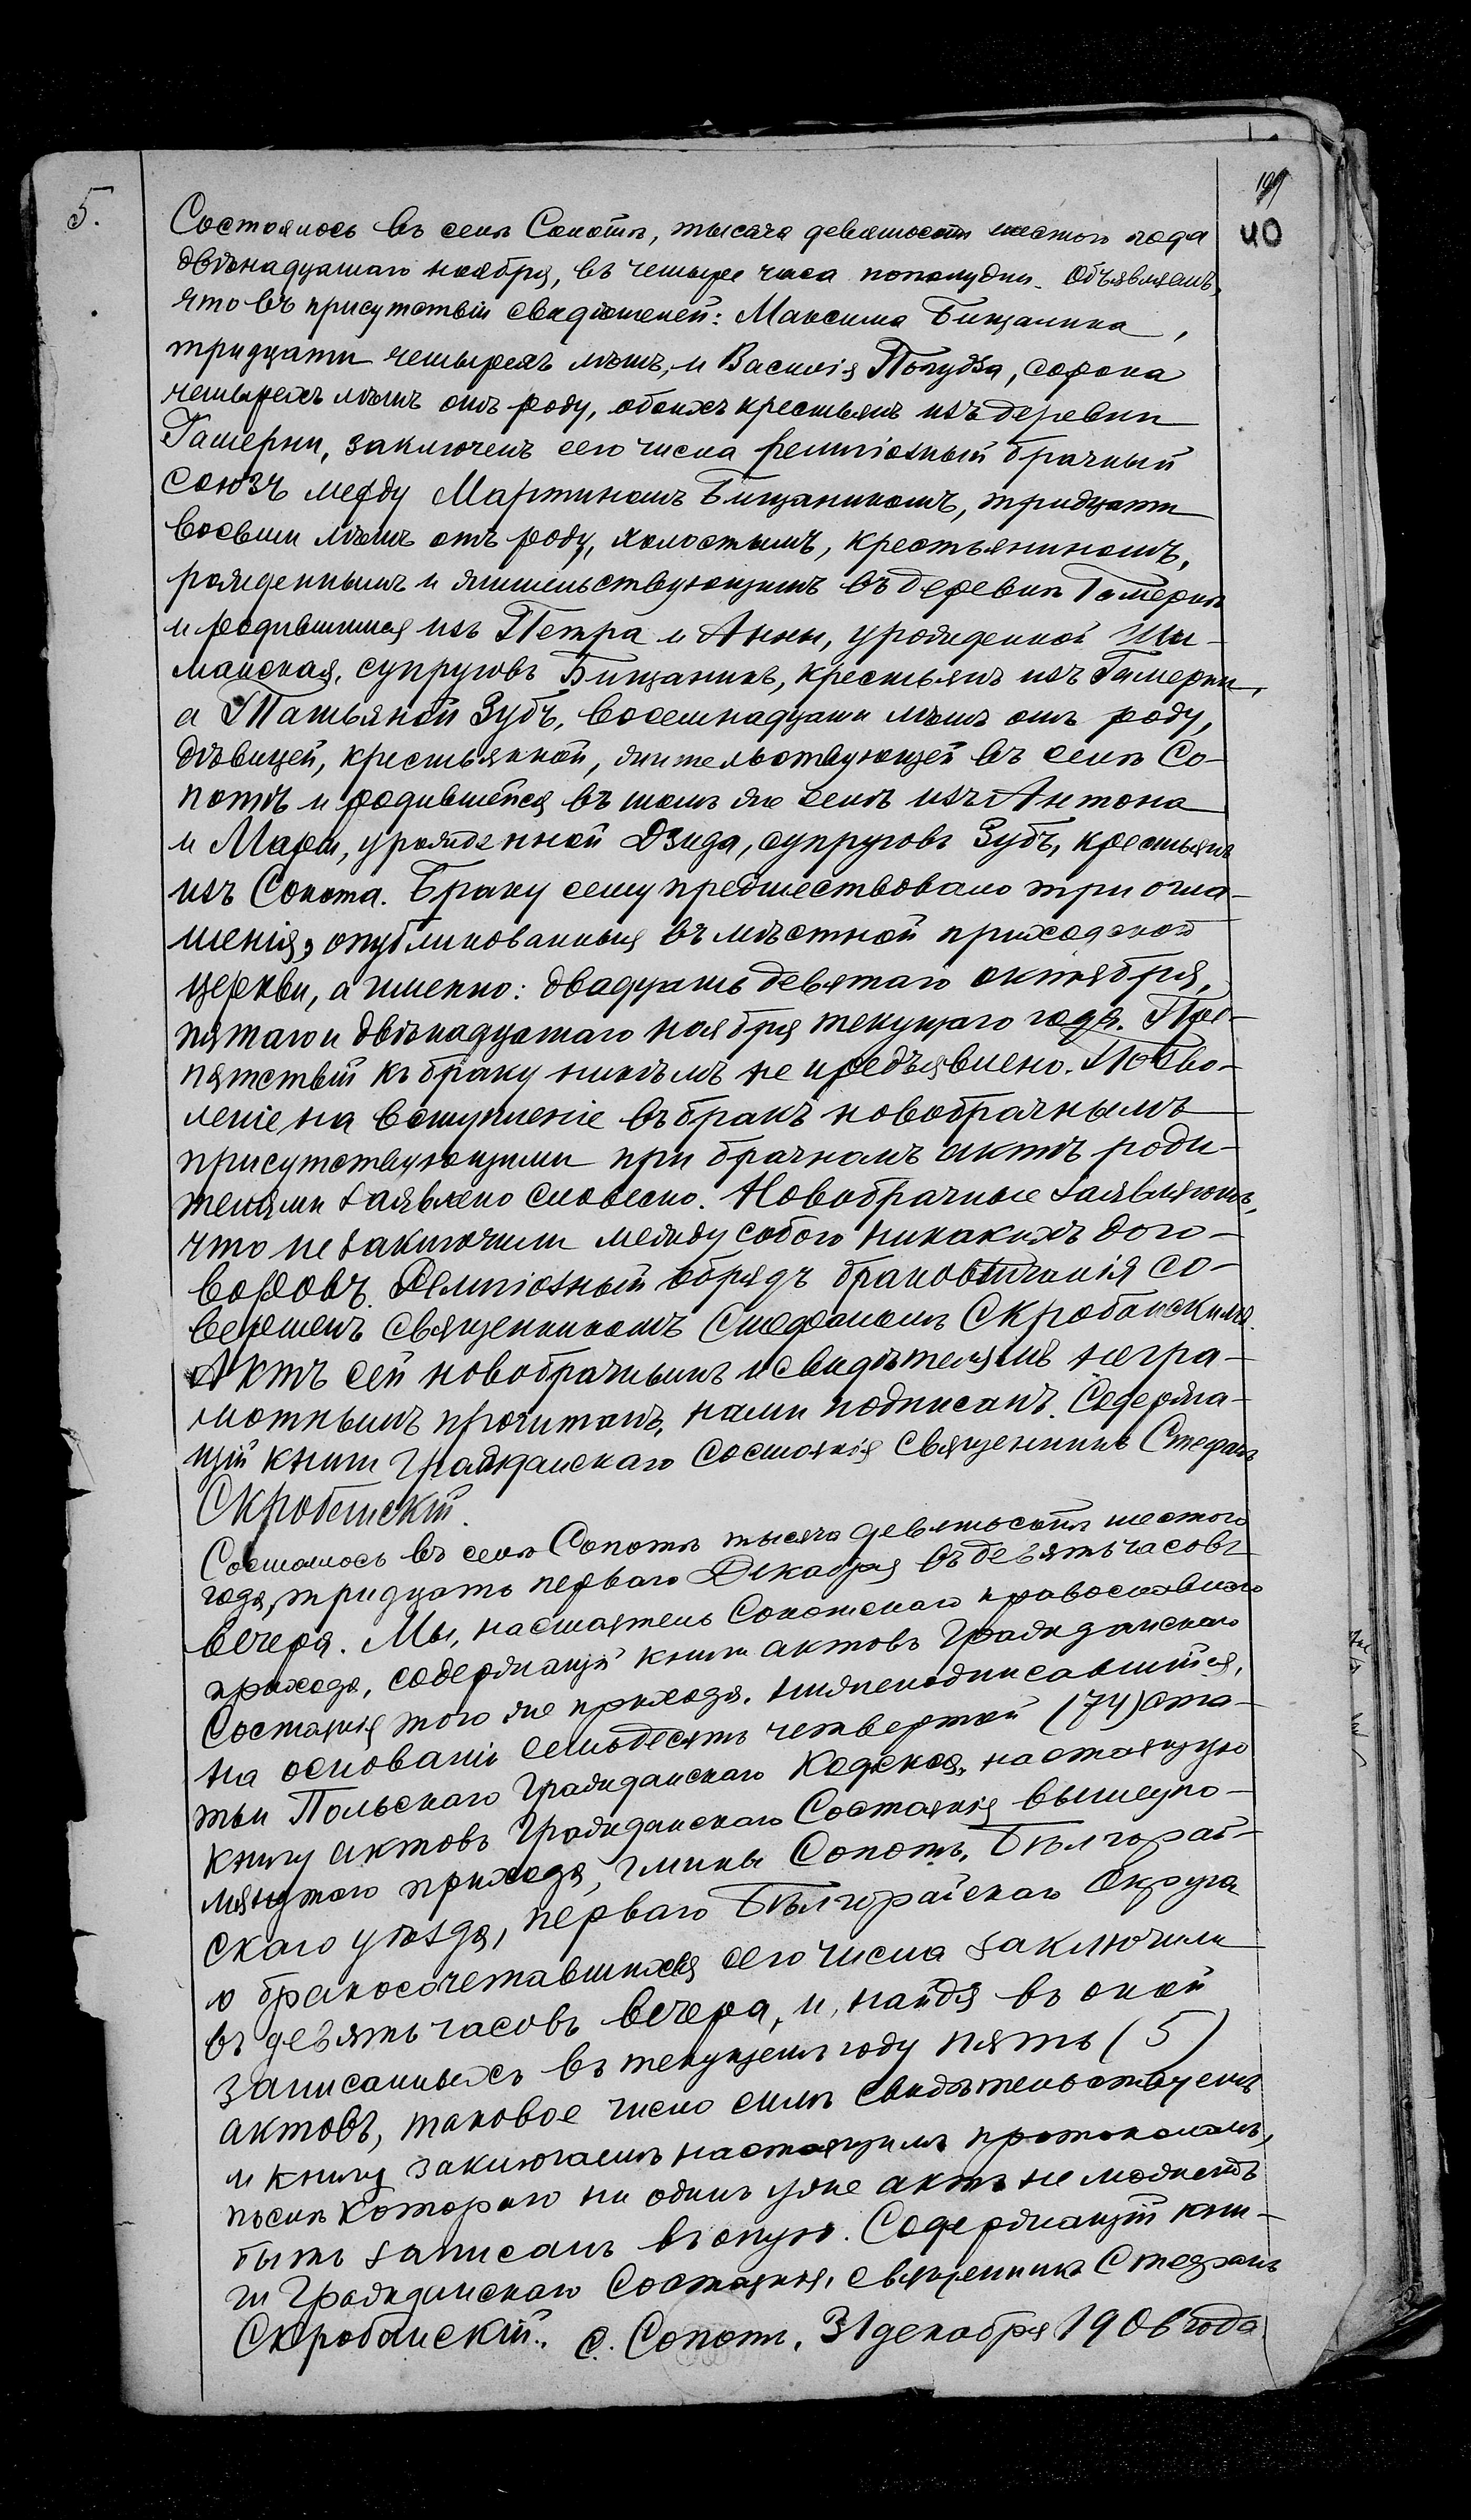 5.
199
40
Состоялось въ селѣ Сопотѣ, тысяча девятьсотъ шестого года
двѣнадцатаго ноября, въ четыре часа пополудни. Объявляемъ,
что въ присутствіи свидѣтелей: Максима Бищаника,
тридцати четырехъ лѣтъ, и Василія Полудзя, сорока
четырехъ лѣтъ отъ роду, обоихъ крестьянъ изъ деревни
Гамерни, заключенъ сего числа религіозный брачный
союзъ между Мартиномъ Бищаникомъ, тридцати
восьми лѣтъ отъ роду, холостымъ, крестьяниномъ,
рожденнымъ и жительствующимъ въ деревнѣ Гамернѣ
и родившимся изъ Петра и Анны, урожденной Ши-
манская, супруговъ Бищаникъ, крестьянъ изъ Гамерни,
а Татьяной Зубъ, восемнадцати лѣтъ отъ роду,
дѣвицей, крестьянкой, жительствующей въ селѣ Со-
потѣ и родившейся въ томъ же селѣ изъ Антона
и Маріи, урожденной Дзида, супруговъ Зубъ, крестьянъ
изъ Сопота. Браку сему предшествовало три огла-
шенія, опубликованныя въ мѣстной приходской
церкви, а именно: двадцать девятаго октября,
пятаго и двѣнадцатаго ноября текущаго года. Пре-
пятствій къ браку никѣмъ не предъявлено. Позво-
леніе на вступленіе въ бракъ новобрачнымъ
присутствующими при брачномъ актѣ роди-
телями заявлено словесно. Новобрачные заявляютъ,
что не заключили между собою никакихъ дого-
воровъ. Религіозный обрядъ браковѣнчанія со-
вершенъ священникомъ Стефаномъ Скробанскимъ.
Актъ сей новобрачнымъ и свидѣтелямъ негра-
мотнымъ прочитанъ, нами подписанъ. Содержа-
щій книги гражданскаго состоянія священникъ Стефанъ
Скробанскій.
Состоялось въ селѣ Сопотѣ тысяча девятьсотъ шестого
года, тридцать перваго Декабря въ девять часовъ
вечера. Мы, настоятель Сопотскаго православнаго
прихода, содержащій книги актовъ Гражданскаго
Состоянія того же прихода, нижеподписавшійся,
на основаніи семьдесятъ четвертой (74) ста-
тьи Польскаго Гражданскаго Кодекса, настоящую
книгу актовъ Гражданскаго Состоянія вышеупо-
мянутаго прихода, гмины Сопотъ, Бѣлгорай-
скаго уѣзда, перваго Бѣлгорайскаго Округа
о бракосочетавшихся сего числа заключили
въ девять часовъ вечера, и, найдя въ оной
записанныхъ въ текущемъ году пять (5)
актовъ, таковое число симъ свидѣтельствуемъ
и книгу заключаемъ настоящимъ протоколомъ,
послѣ котораго ни одинъ уже актъ не можетъ
быть записанъ въ оную. Содержащій кни-
ги Гражданскаго Состоянія, священникъ Стефанъ
Скробанскій. с. Сопотъ, 31 декабря 1906 года